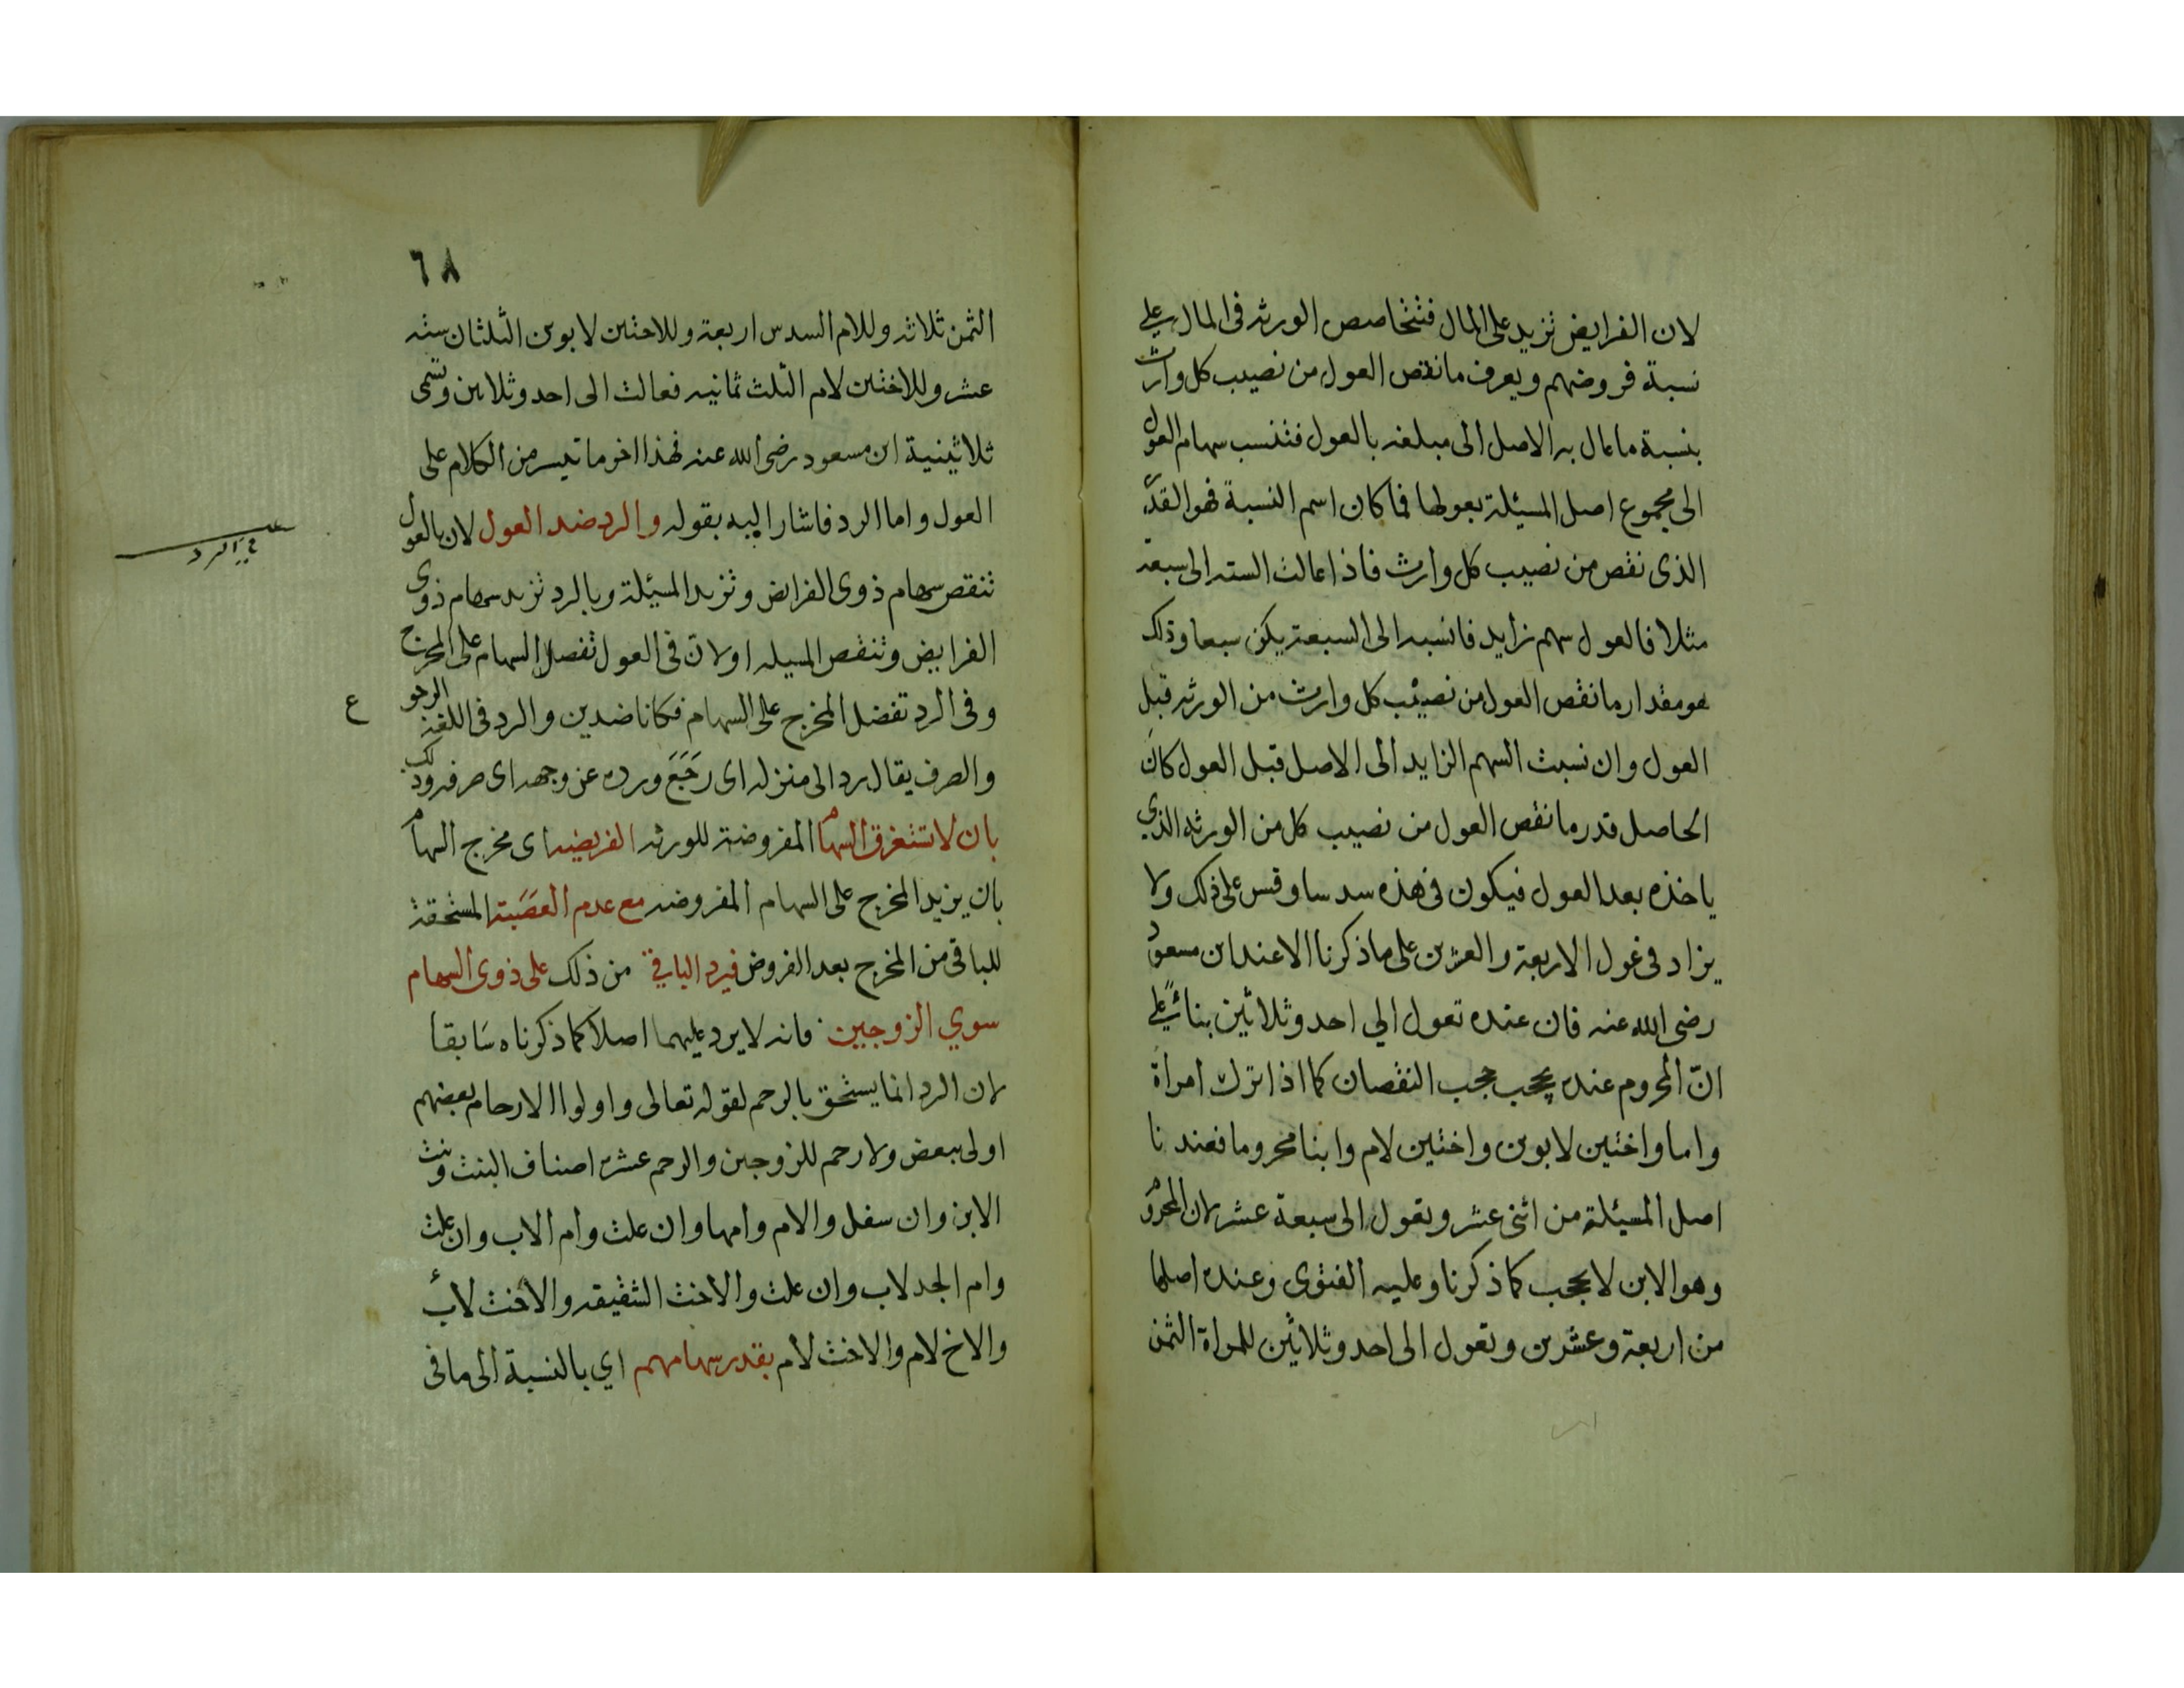 لان الفرايض تزيد على المال فتتخاصص الورثه فى المال على
نسبة فروضهم ويعرف ما نقص العول من نصيب كل وارث
بنسبة ما عال به الاصل الى مبلغه بالعول فتنسب سهام العول
الى مجموع اصل المسئلة بعولها فما كان اسم النسبة فهو القدر
الذى نقص من نصيب كل وارث فاذا عالت الستة الى سبعة
مثلا فالعول سهم زايد فانسبه الى السبعة يكن سبعا وذلك
هو مقدار ما نقص العول من نصيب كل وارث من الورثه قبل
العول وان نسبت السهم الزايد الى الاصل قبل العول كان
الحاصل قدر ما نقص العول من نصيب كل من الورثه الذي
ياخذه بعد العول فيكون فى هذه سدسا وقس على ذلك ولا
يزاد فى عول الاربعة والعشرين على ما ذكرنا الا عند ابن مسعود
رضى الله عنه فان عنده تعول الي احد وثلاثين بنائً على
انّ المحروم عنده يحجب حجب النقصان كما اذا ترك امراة
واما واختين لابوين واختين لام وابنا محروما فعندنا
اصل المسئلة من اثنى عشر وتعول الى سبعة عشر لان المحروم
وهو الابن لا يحجب كما ذكرنا وعليه الفتوى وعنده اصلها
من اربعة وعشرين وتعول الى احد وثلاثين للمراة الثمن
٦٨
الثمن ثلاثه وللام السدس اربعة وللاختين لابوين الثلثان سته
عشر وللاختين لام الثلث ثمانيه فعالت الى احد وثلاثين وتسمى
ثلاثينية ابن مسعود رضى الله عنه فهذا اخر ما تيسر من الكلام على
العول واما الرد فاشار اليه بقوله والرد ضد العول لان بالعول
تنقص سهام ذوى الفرايض وتزيد المسئلة وبالرد تزيد سهام ذوى
الفرايض وتنقص المسيله او لان فى العول تفضل السهام على المخرج
وفى الرد تفضل المخرج على السهام فكانا ضدين والرد فى اللغة الرجو
ع
والصرف يقال رد الى منزله اى رَجَعَ ورده عن وجهه اى صرفه وذلك
بان لا تستغرق السهام المفروضة للورثه الفريضه اى مخرج السهام
بان يزيد المخرج على السهام المفروضه مع عدم العصَبة المستحقة
للباقى من المخرج بعد الفروض فيرد الباقي من ذلك على ذوى السهام
سوي الزوجين فانه لا يرد عليهما اصلا كما ذكرناه سَابقا
لان الرد انما يستحق بالرحم لقوله تعالى واولوا الارحام بعضهم
اولى ببعض ولا رحم للزوجين والرحم عشرة اصناف البنت وبنت
الابن وان سفل والام وامها وان علت وام الاب وان علت
وام الجد لاب وان علت والاخت الشقيقه والاخت لاب
والاخ لام والاخت لام بقدر سهامهم اي بالنسبة الى ما فى
في الرد